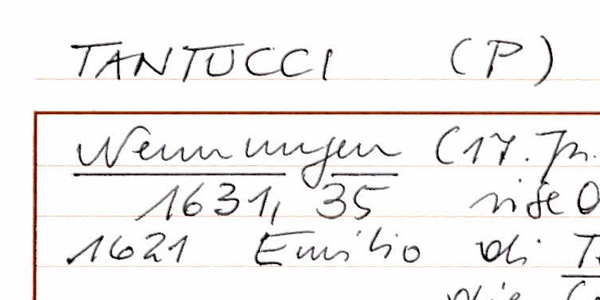 TANTUCCI (P)
Nennungen (17. Jh.
1631, 35 siehe
1621 Emilio di T
die